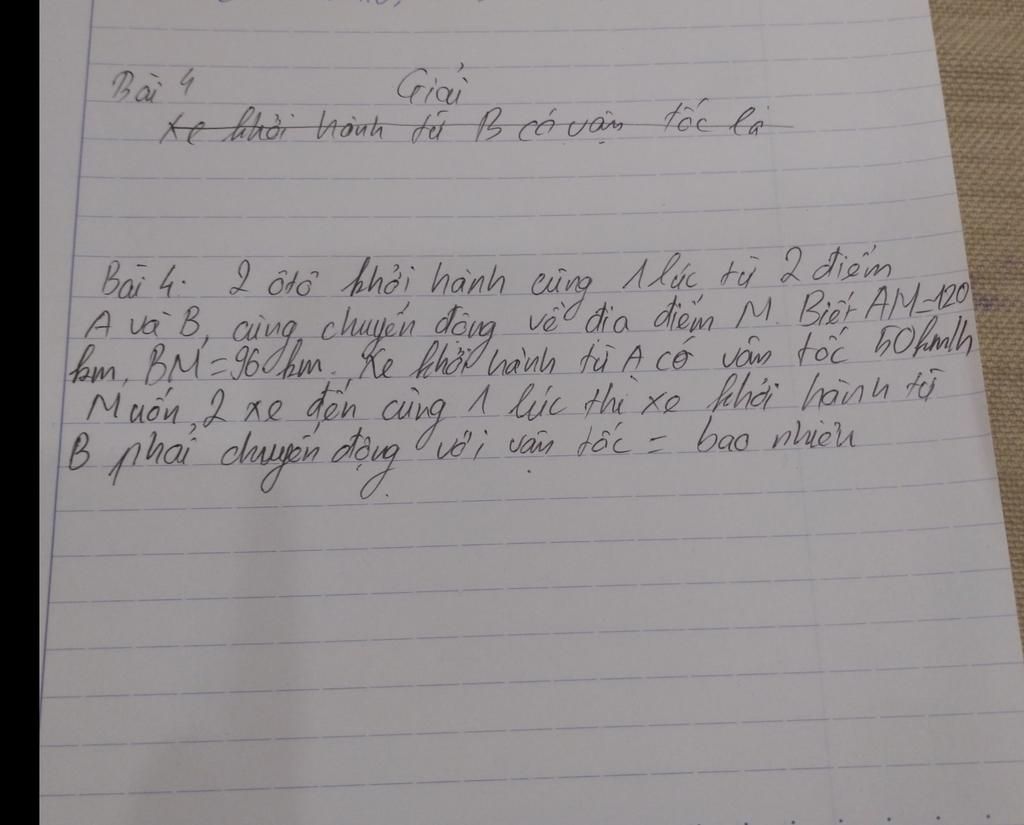 Bài 4 Giải
Xe khởi hành từ B có vận tốc là
Bài 4. 2 ôtô khởi hành cùng 1 lúc từ 2 điểm
A và B, cùng chuyển động về địa điểm M. Biết AM=120
km, BM=96km. Xe khởi hành từ A có vân tốc 50km/h
Muốn 2 xe đến cùng 1 lúc thì xe khởi hành từ
B phải chuyển động với vận tốc = bao nhiêu